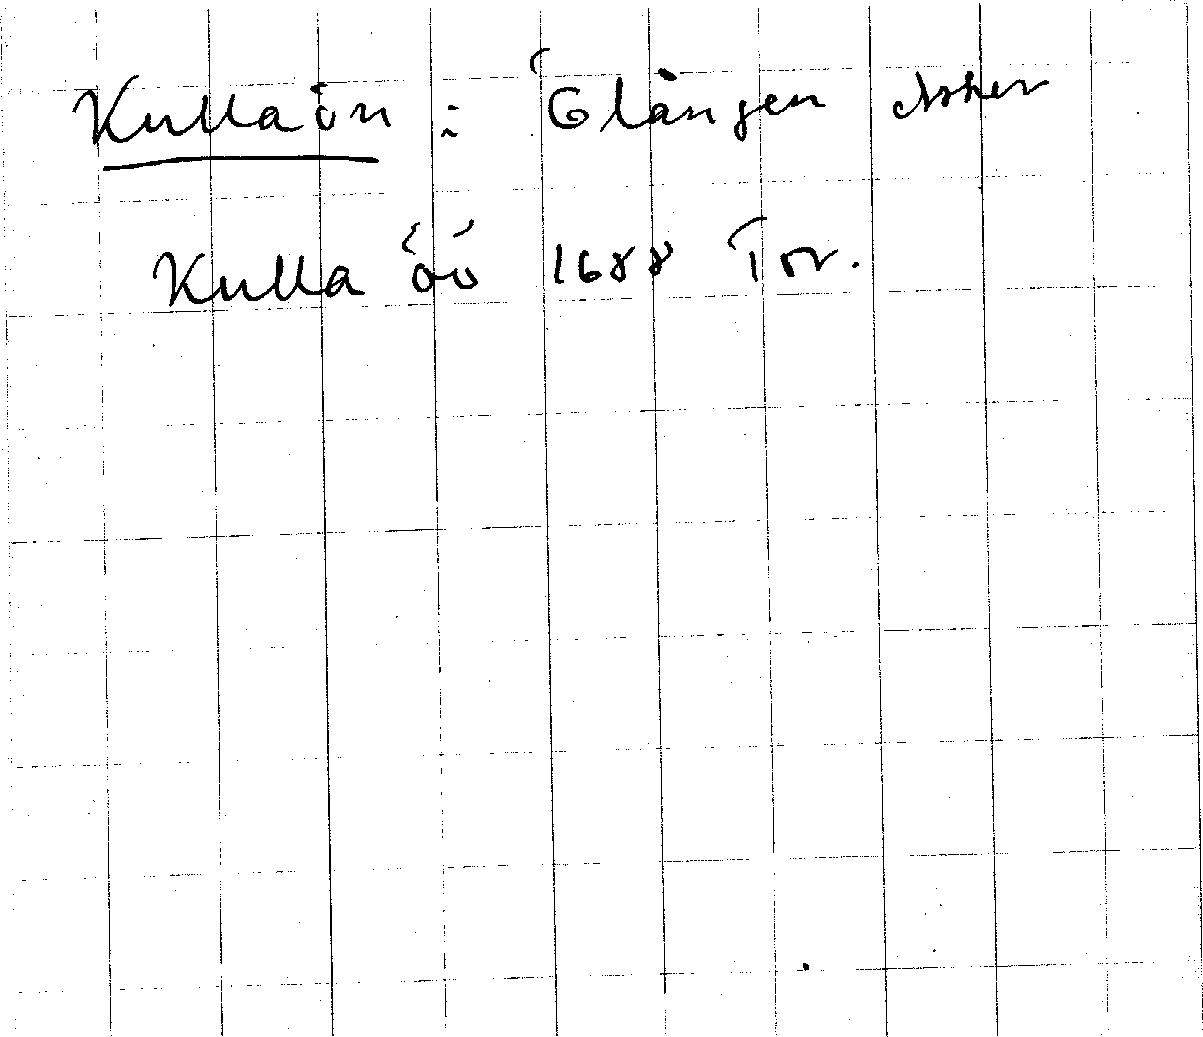 Kullaön : Glången Asker
Kulla öö 1688 Tor.